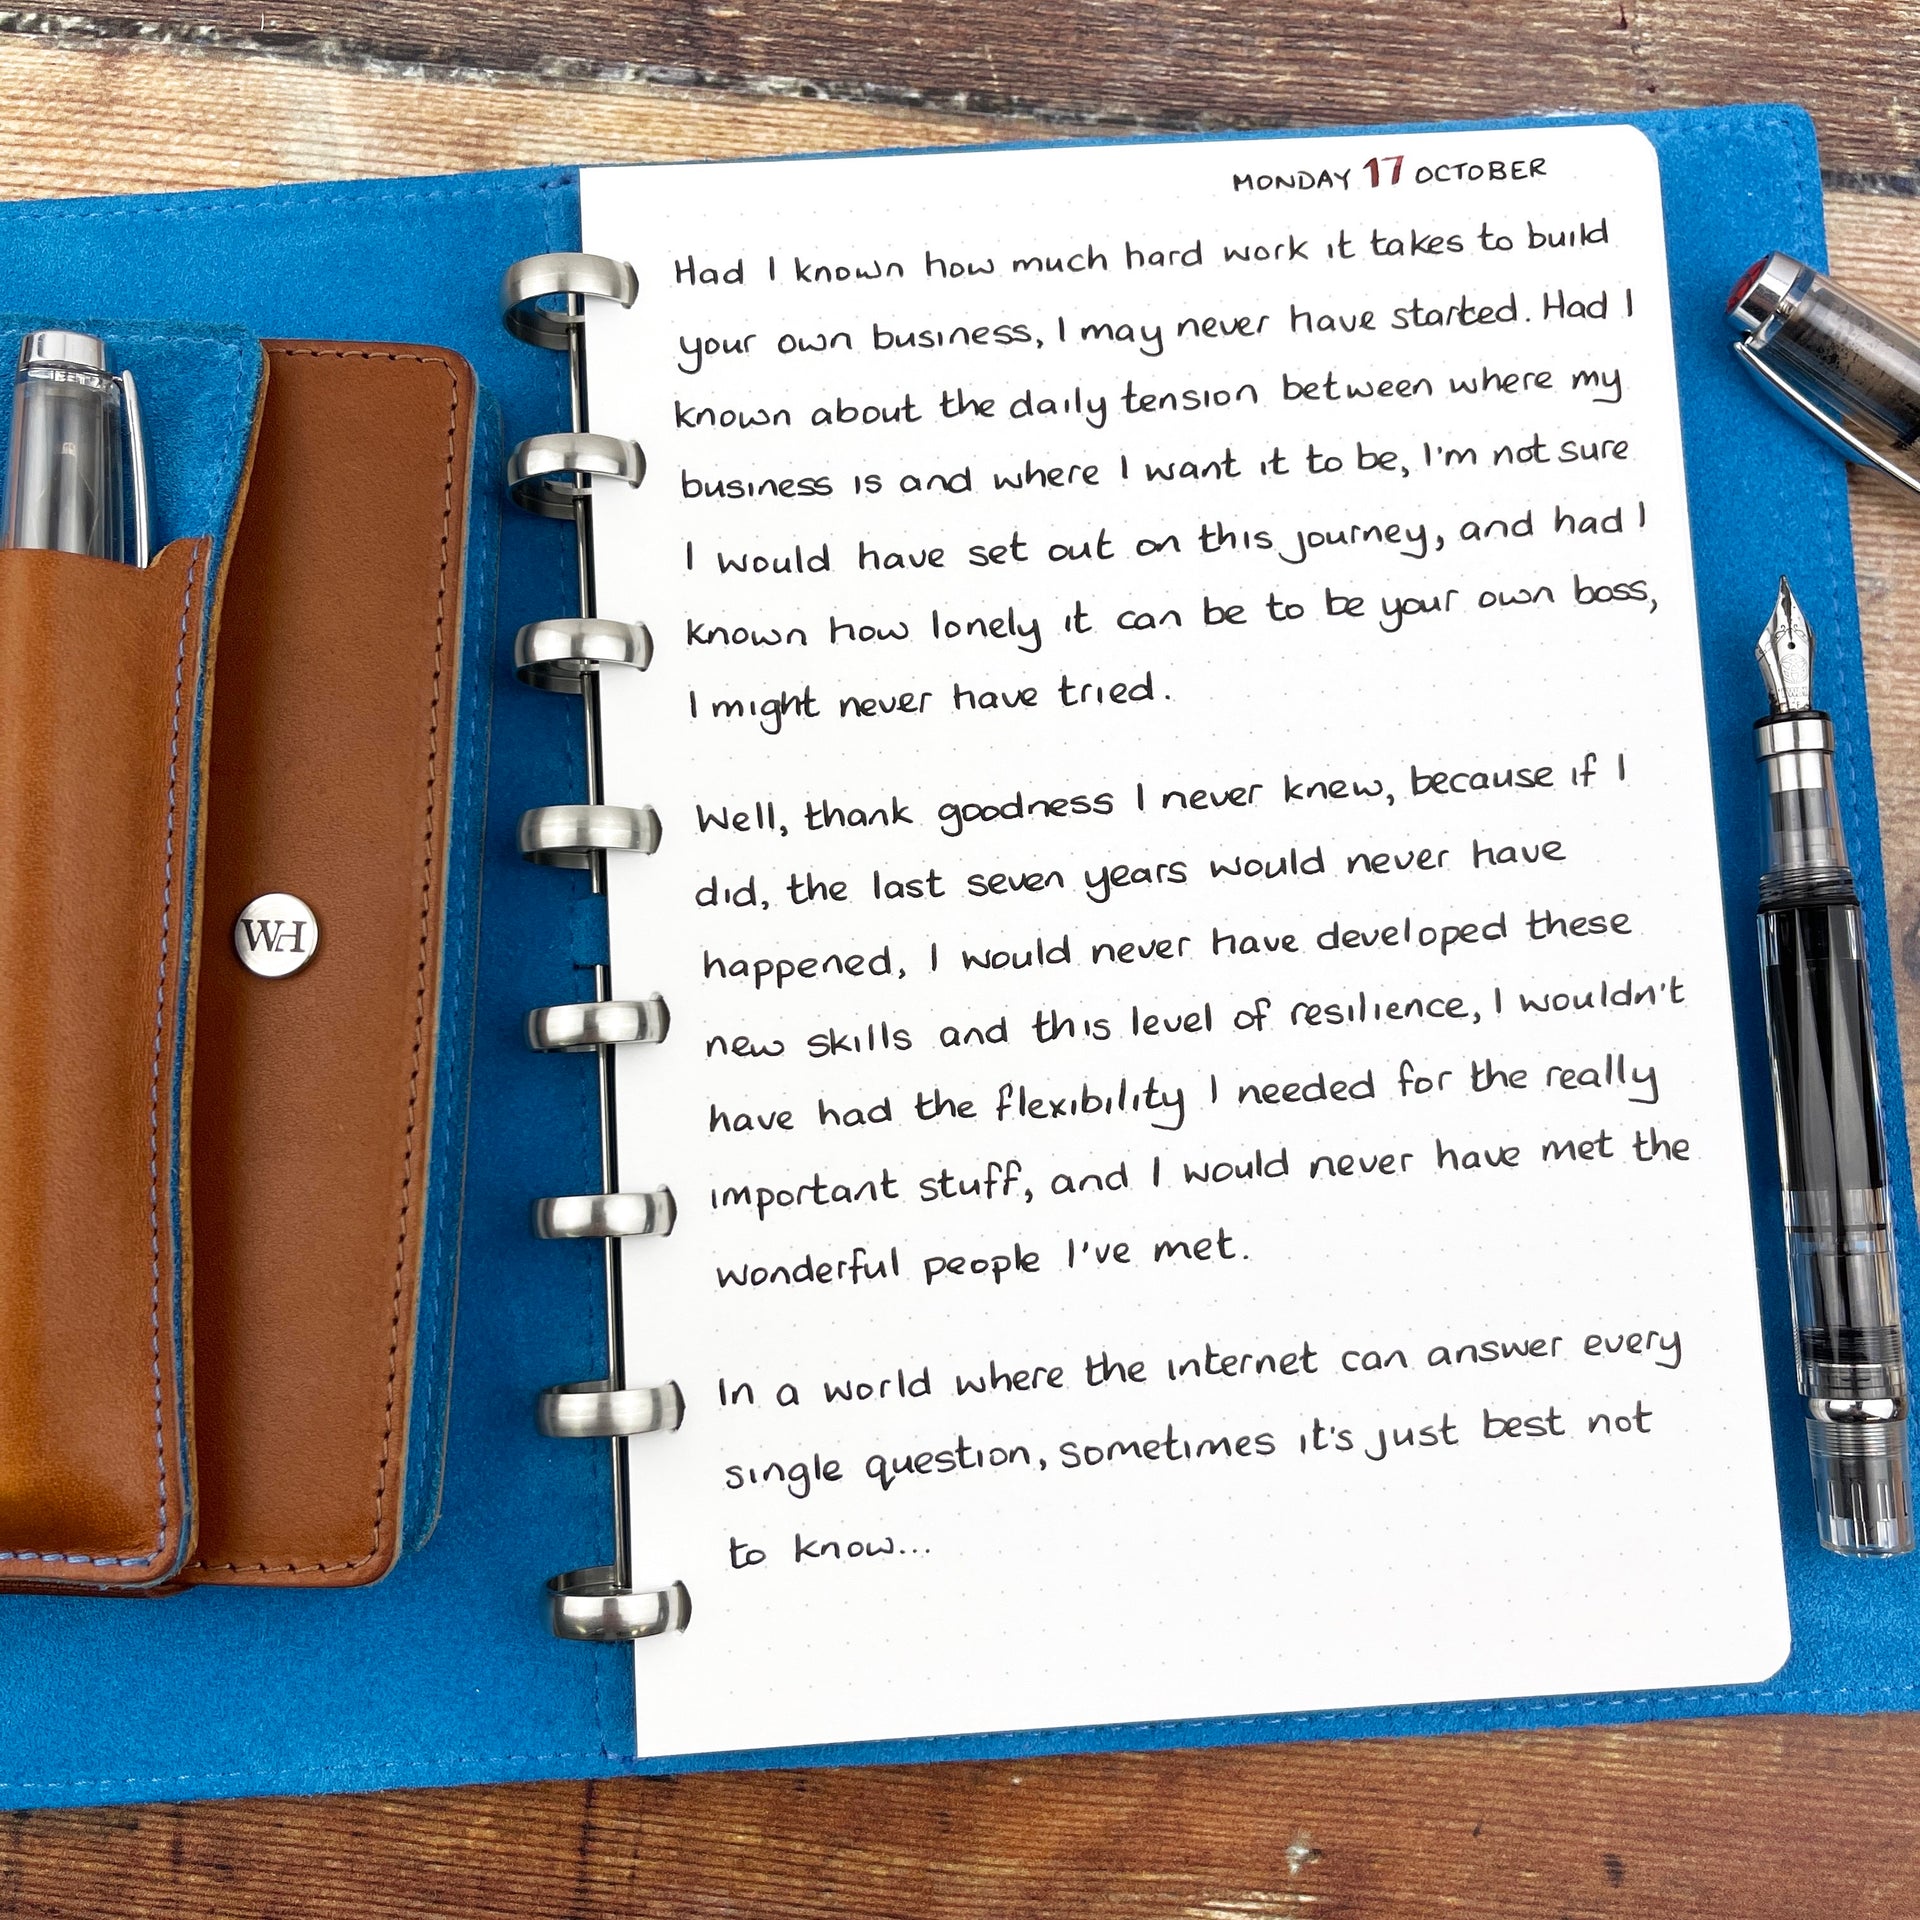 MONDAY 17 OCTOBER
Had I known how much hard work it takes to build
your own business, I may never have started. Had I
known about the daily tension between where my
business is and where I want it to be, I'm not sure
I would have set out on this journey, and had I
known how lonely it can be to be your own boss,
I might never have tried.
Well, thank goodness I never knew, because if I
did, the last seven years would never have
happened, I would never have developed these
new skills and this level of resilience, I wouldn't
have had the flexibility I needed for the really
important stuff, and I would never have met the
wonderful people I've met.
In a world where the internet can answer every
single question, sometimes it's just best not
to know...
WH